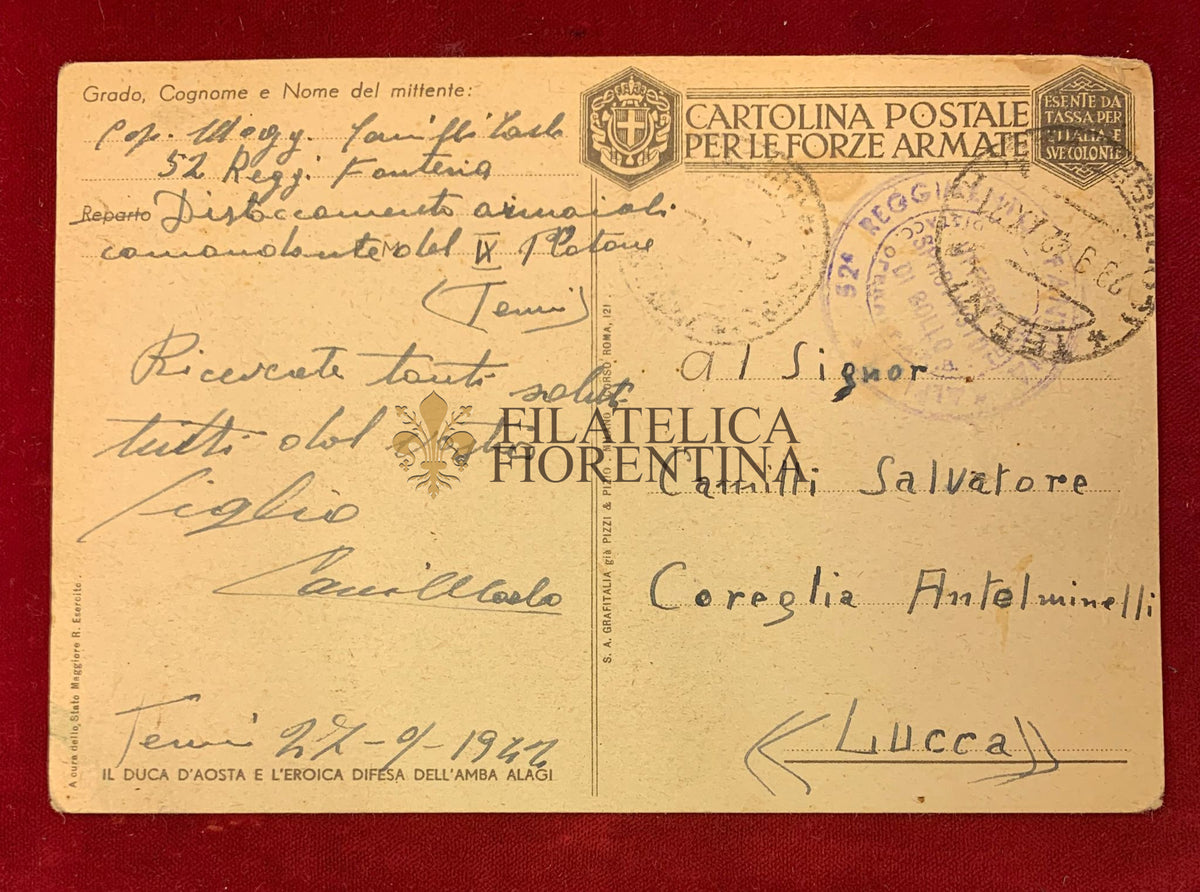 Grado, Cognome e Nome del mittente:
Cap. Magg. Camilli Carlo
52 Regg. Fanteria
Reparto Distaccamento armaioli
comandante del IX Plotone
(Terni)
Ricevete tanti saluti
tutti dal vostro
figlio
Camilli Carlo
Terni 27-9-1942
IL DUCA D'AOSTA E L'EROICA DIFESA DELL'AMBA ALAGI
A cura dello Stato Maggiore R. Esercito.
S. A. GRAFITALIA già PIZZI & PIZIO - MILANO - CORSO ROMA, 121
CARTOLINA POSTALE
PER LE FORZE ARMATE
ESENTE DA
TASSA PER
L'ITALIA E
SUE COLONIE
52° REGGIMENTO FANTERIA
DI BOLLO
TERNI
al Signor
Camilli Salvatore
Coreglia Antelminelli
(Lucca)
FILATELICA
FIORENTINA